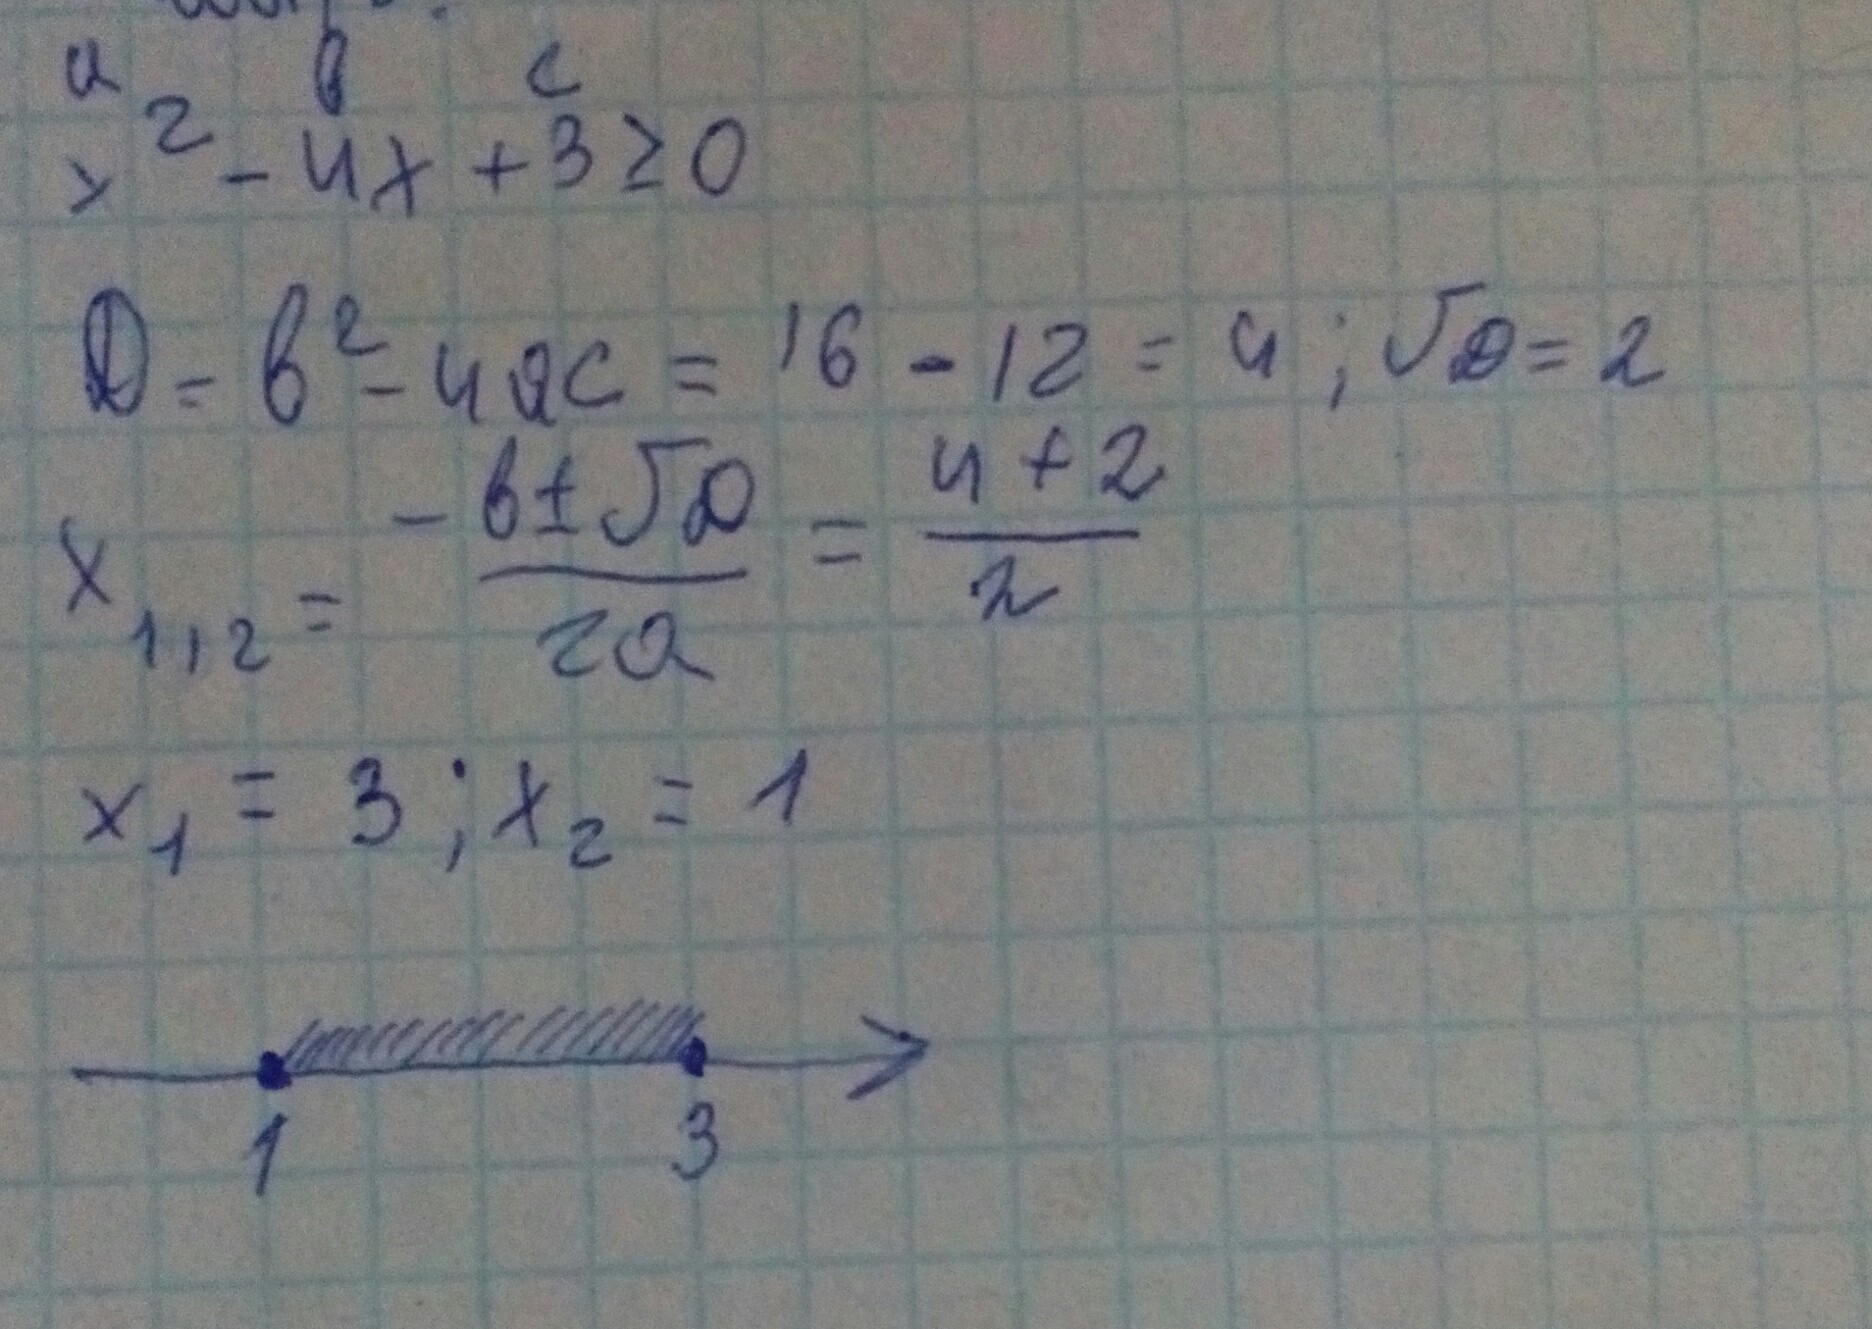 a в c
x² - 4x + 3 ≥ 0
D = в² - 4ac = 16 - 12 = 4 ; √D = 2
x₁,₂ = -в±√D / 2a = 4 + 2 / 2
x₁ = 3 ; x₂ = 1
1 3